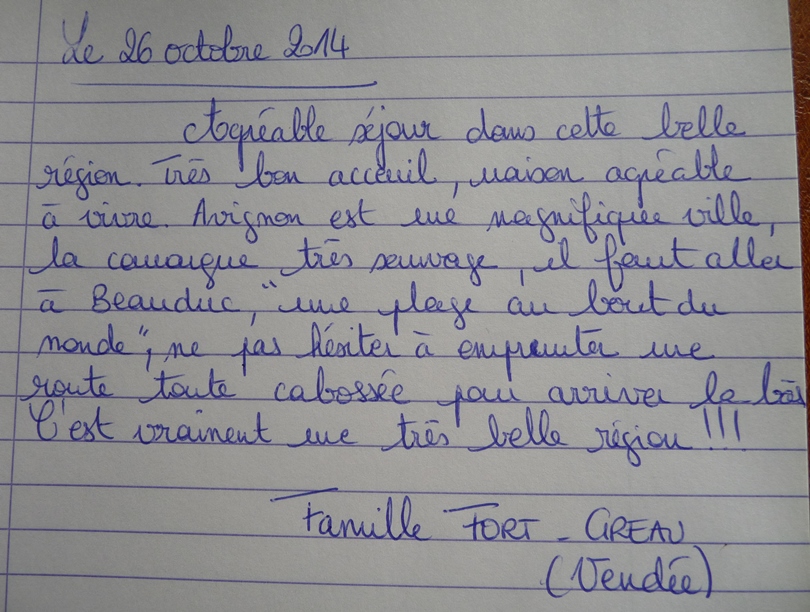 Le 26 octobre 2014
Agréable séjour dans cette belle
région. Très bon acceuil, maison agréable
à vivre. Avignon est une magnifique ville,
la camargue très sauvage, il faut aller
à Beauduc, "une plage au bout du
monde", ne pas hésiter à emprunter une
route toute cabossée pour arriver là bas
C'est vraiment une très belle région !!!
Famille FORT - GREAU
(Vendée)